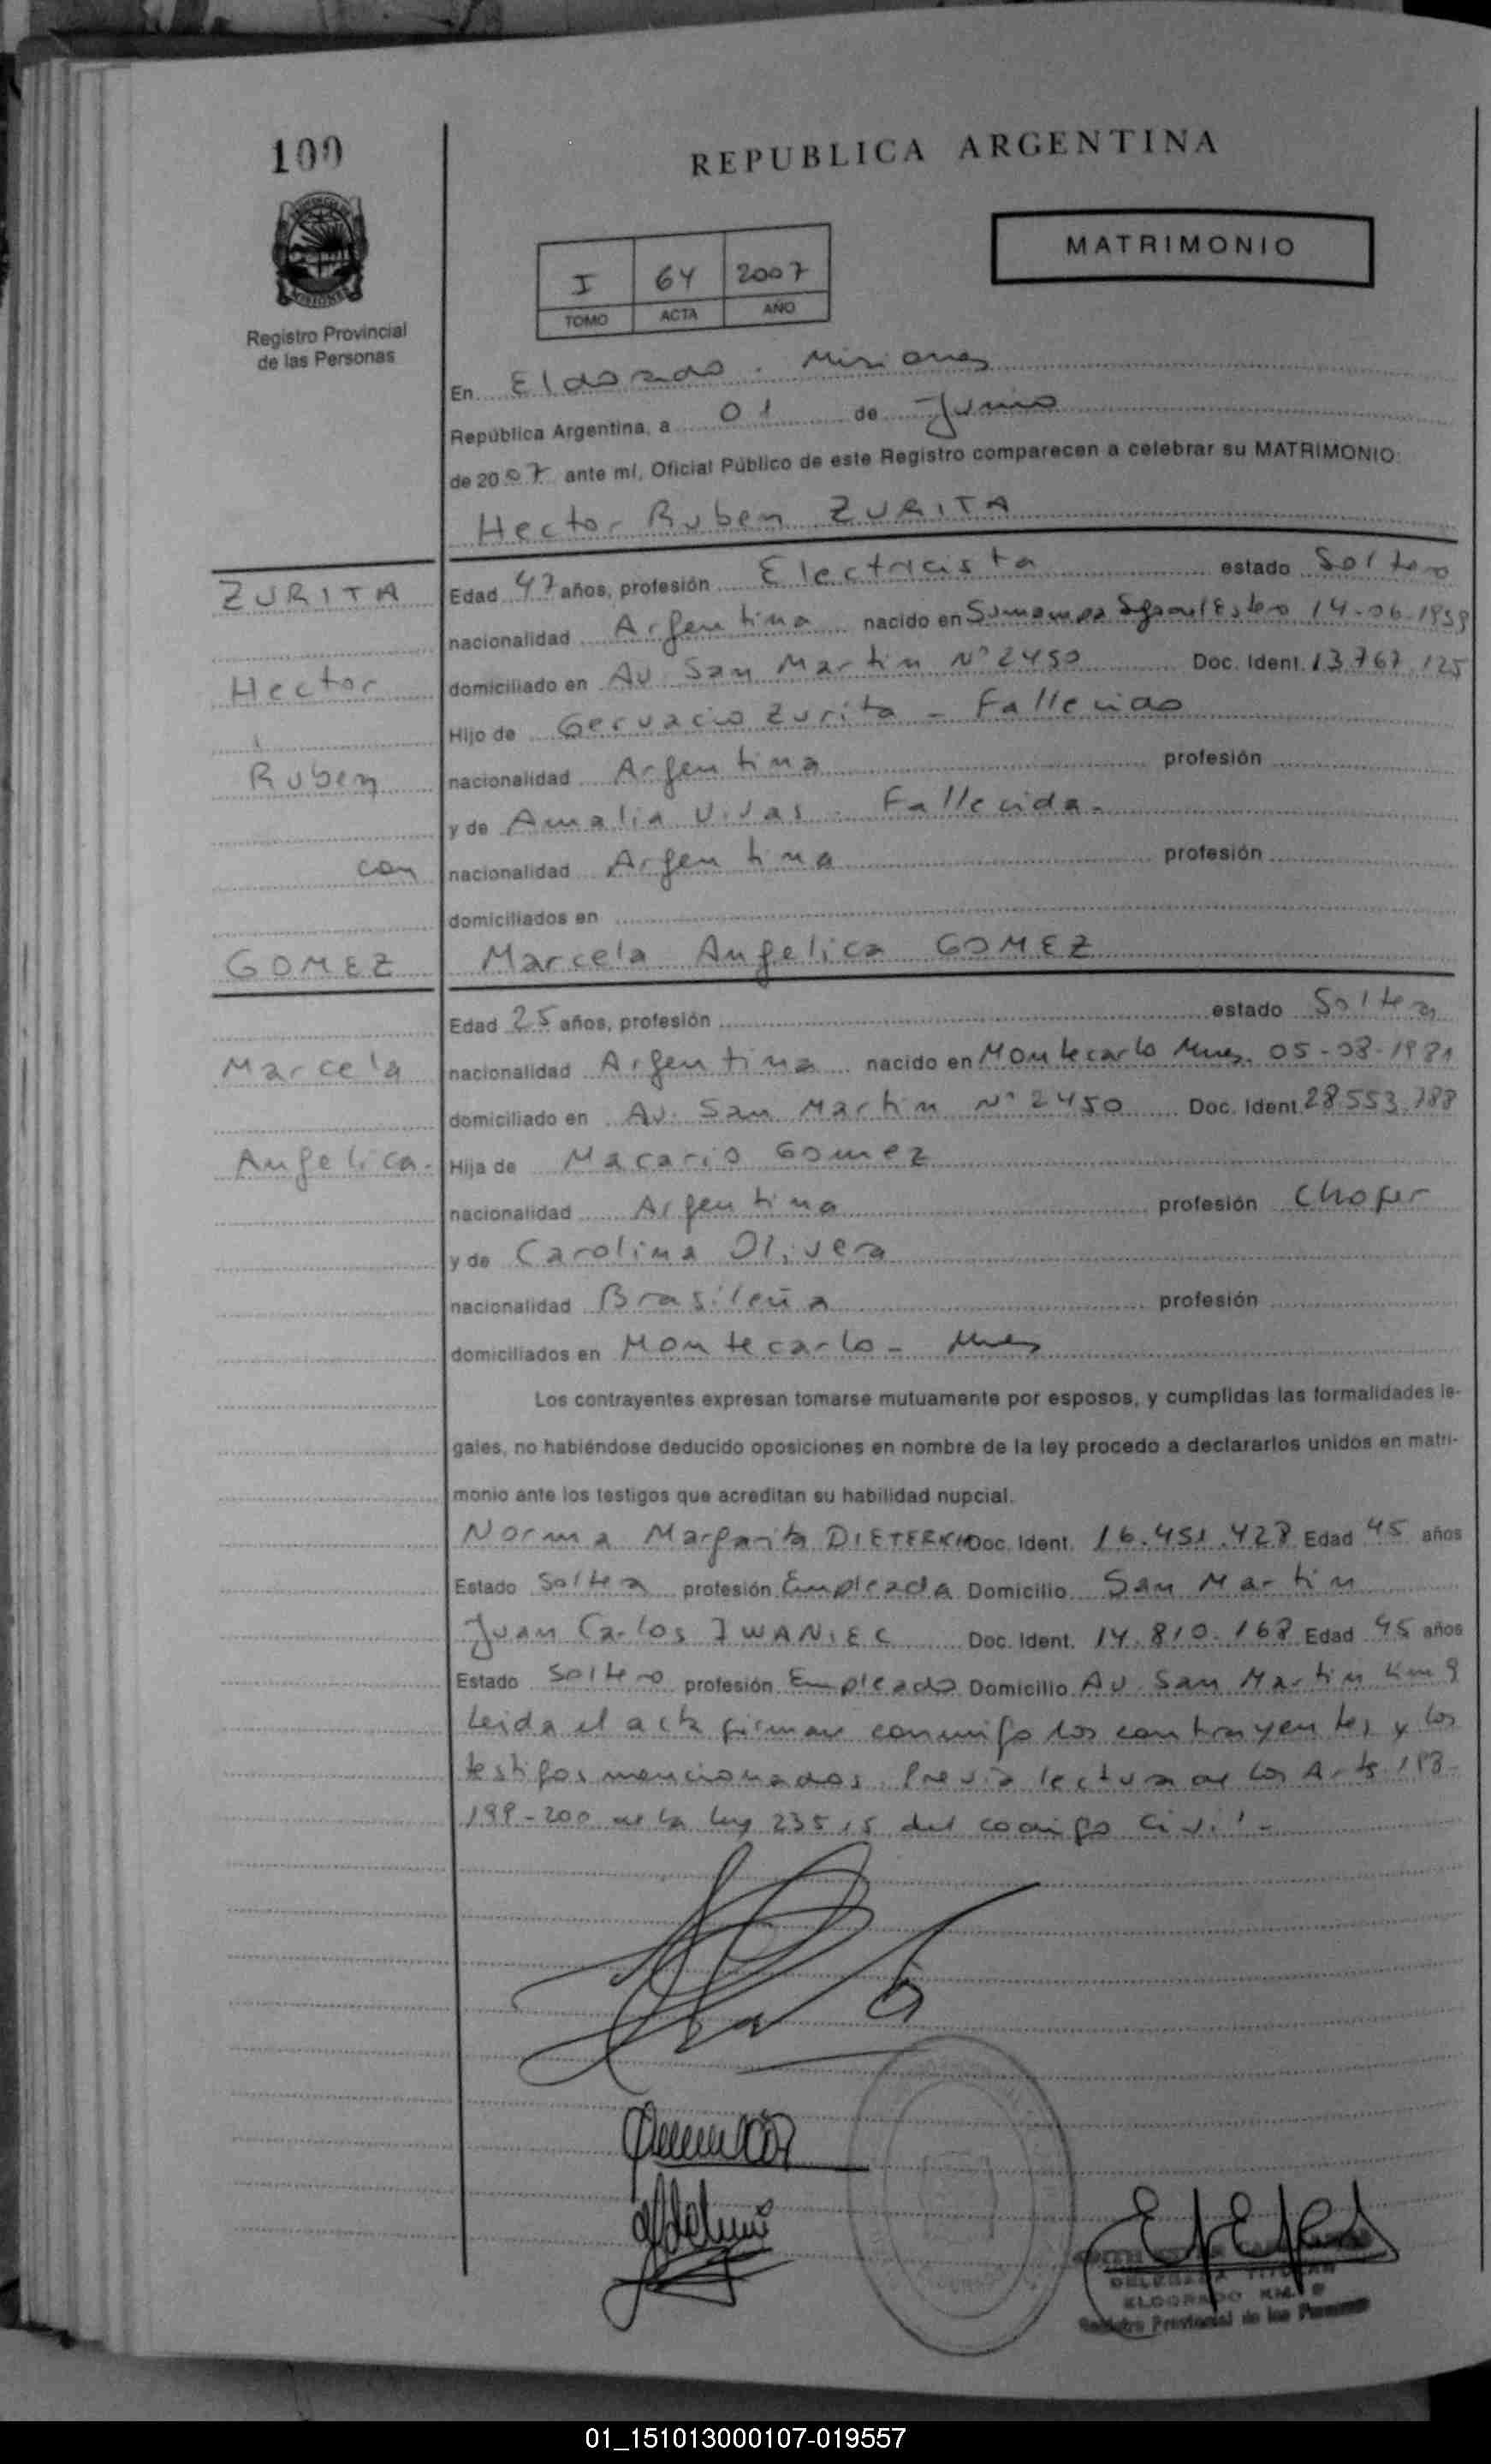 100
REPUBLICA ARGENTINA
MATRIMONIO
I 64 2007
TOMO ACTA AÑO
Registro Provincial
de las Personas
En Eldorado - Misiones
República Argentina, a 01 de Junio
de 2007 ante mí, Oficial Público de este Registro comparecen a celebrar su MATRIMONIO:
Hector Ruben ZURITA
ZURITA
Edad 47 años, profesión Electricista estado Soltero
nacionalidad Argentina nacido en Sumampa Sgo del Estero 14-06-1959
Hector
domiciliado en Av. San Martin N° 2450 Doc. Ident. 13.767.125
Hijo de Gervacio Zurita - Fallecido
Ruben
nacionalidad Argentina profesión
y de Amalia Vivas - Fallecida.
con
nacionalidad Argentina profesión
domiciliados en
GOMEZ
Marcela Angelica GOMEZ
Edad 25 años, profesión estado Soltera
Marcela
nacionalidad Argentina nacido en Montecarlo Mnes. 05-08-1981
domiciliado en Av. San Martin N° 2450 Doc. Ident. 28.553.788
Angelica.
Hija de Macario Gomez
nacionalidad Argentina profesión Chofer
y de Carolina Olivera
nacionalidad Brasileña profesión
domiciliados en Montecarlo - Mnes
Los contrayentes expresan tomarse mutuamente por esposos, y cumplidas las formalidades le-
gales, no habiéndose deducido oposiciones en nombre de la ley procedo a declararlos unidos en matri-
monio ante los testigos que acreditan su habilidad nupcial.
Norma Margarita Doc. Ident. 16.451.428 Edad 45 años
Estado Soltera profesión Empleada Domicilio San Martin
Juan Carlos IWANIEC Doc. Ident. 14.810.168 Edad 45 años
Estado Soltero profesión Empleado Domicilio Av. San Martin km 9
Leida el acta firman conmigo los contrayentes y los
testigos mencionados. Previa lectura de los Arts. 198-
199-200 de la ley 23515 del codigo Civil -
DELEGADA TITULAR
ELDORADO KM. 9
Registro Provincial de las Personas
01_151013000107-019557